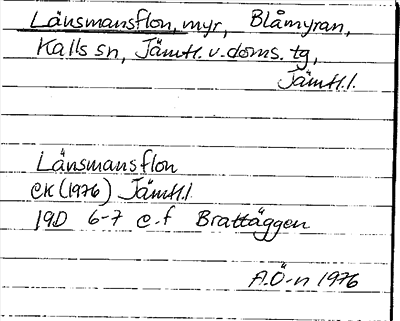 Länsmansflon, myr, Blåmyran,
Kalls sn, Jämtl. v. doms. tg,
Jämtl. l.
Länsmansflon
EK (1976) Jämtl.
19D 6-7 e-f Brattäggen
A.Ö-n 1976